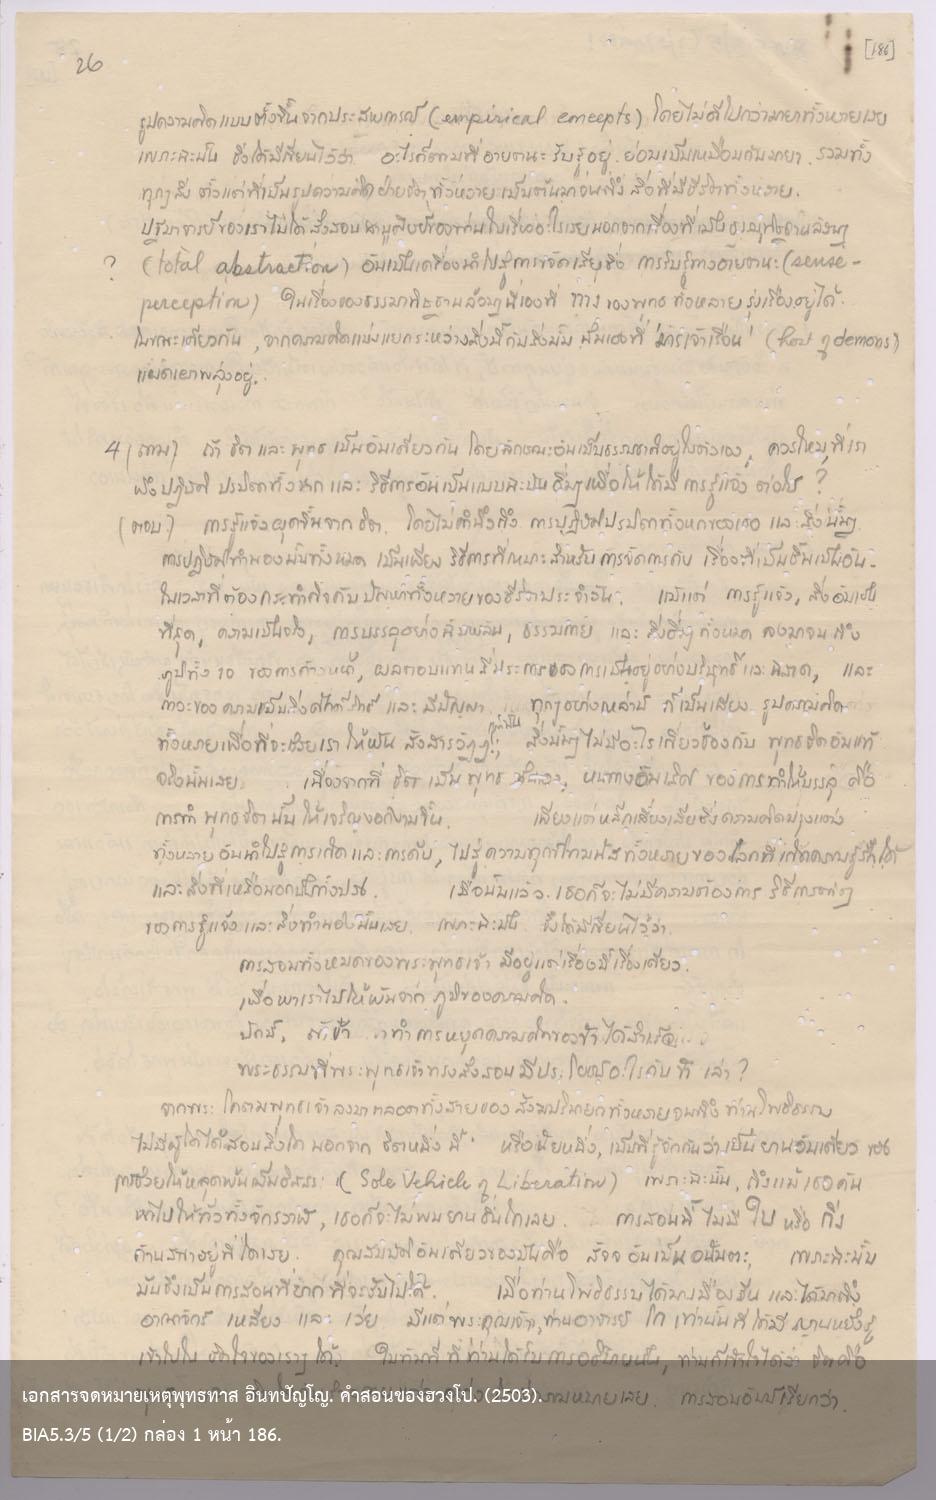 26
[186]
รูปความคิดแบบตั้งขึ้นจากประสพการณ์ (empirical concepts) โดยไม่
เพราะฉะนั้น จึงได้มีเขียนไว้ว่า อะไรก็ตามที่อายตนะรับรู้อยู่ ย่อมเป็นเหมือนกับมายา รวมทั้ง
ทุกๆสิ่ง ตั้งแต่ที่เป็นรูปความคิดฝ่ายจิตทั้งหลาย สิ่งที่มีชีวิตทั้งหลาย.
ปฐมาจารย์ของเราไม่ได้สั่งสอนสานุศิษย์ของท่านในเรื่องอะไรเลยนอกจากเรื่อง
? (total abstraction) อันเป็นเครื่องนำไปสู่การขจัดเสียซึ่ง การรับรู้ทางอายตนะ (sense-
perception) ในเรื่องของ ทาง ของพุทธทั้งหลายรุ่งเรืองอยู่ได้.
ในขณะเดียวกัน, จากความคิดแบ่งแยกระหว่างสิ่งนี้กับสิ่งนั้น นั่นเองที่ 'มารเจ้าเรือน' (host of demons)
4 (ถาม) ถ้า จิต และ พุทธ เป็นอันเดียวกัน โดยลักษณะอันเป็นธรรมชาติอยู่ในตัวเอง, ควรไหมที่เรา
พึงปฏิบัติ ปรมิตาทั้งหก และ วิธีการอันเป็นแบบฉบับอื่นๆเพื่อให้ได้มี การรู้แจ้ง ต่อไป ?
(ตอบ) การรู้แจ้งผุดขึ้นจาก จิต. โดยไม่คำนึงถึง การปฏิบัติปรมิตาทั้งหกของเธอ และสิ่งนั้นๆ
การปฏิบัติทำนองนั้นทั้งหมด เป็นเพียง วิธีการที่เหมาะสำหรับการจัดการกับ
ในเวลาที่ต้องกระทำกิจกับปัญหาทั้งหลายของชีวิตประจำวัน. แม้แต่ การรู้แจ้ง, สิ่งอันเป็น
ที่สุด, ความเป็นจริง, การบรรลุอย่างฉับพลัน, ธรรมกาย และ สิ่งอื่นๆทั้งหมด ลงมาจนถึง
ภูมิทั้ง ๑๐ ของการก้าวหน้า, ผลตอบแทน ของการเป็นอยู่อย่างบริสุทธิ์และฉลาด, และ
ภาวะของความเป็นสิ่งศักดิ์สิทธิ์ และมีปัญญา ทุกๆอย่างเหล่านี้ ก็เป็นเพียง รูปความคิด
ทั้งหลายเพื่อที่จะช่วยเราให้พ้น สังสารวัฏฏ์ เท่านั้น; สิ่งนั้นๆไม่มีอะไรเกี่ยวข้องกับ พุทธจิตอันแท้
จริงนั้นเลย. เนื่องจากที่ จิต เป็น พุทธ หนทางอันเลิศ ของการทำให้บรรลุ คือ
การทำ พุทธจิต นั้น ให้เจริญงอกงามขึ้น. เพียงแต่หลีกเลี่ยงเสียซึ่งความคิดปรุงแต่ง
ทั้งหลายอันนำไปสู่การเกิดและการดับ, ไปสู่ความทุกข์โทมนัสทั้งหลายของโลกที่เกิดความรู้สึกได้
และสิ่งที่เหลือนอกนั้นทั้งปวง. เมื่อนั้นแล้ว เธอก็จะไม่มีความต้องการ วิธีการต่างๆ
ของการรู้แจ้งและสิ่งทำนองนั้นเลย. เพราะฉะนั้น จึงได้มีเขียนไว้ว่า.
การสอนทั้งหมดของพระพุทธเจ้า มีอยู่แต่เรื่องนี้เรื่องเดียว.
เพื่อพาเราไปให้พ้นจาก ภูมิของความคิด.
บัดนี้, ถ้าข้า ทำการหยุดความคิดของข้าได้สำเร็จ
พระธรรมที่พระพุทธเจ้าทรงสั่งสอน มีประโยชน์อะไรกับข้าเล่า ?
จากพระโคตมพุทธเจ้า ลงมาตลอดทั้งสายของสังฆปรินายกทั้งหลายจนถึง ท่านโพธิธรรม
ไม่มีผู้ใดได้สอนสิ่งใด นอกจาก จิตหนึ่งนี้ หรืออีกนัยหนึ่ง, เป็นที่รู้จักกันว่าเป็นยานอันเดียว ของ
การช่วยให้หลุดพ้นเป็นอิสระ (Sole Vehicle of Liberation) เพราะฉะนั้น, ถึงแม้เธอค้น
หาไปให้ทั่วทั้งจักรวาฬ, เธอก็จะไม่พบยานอื่นใดเลย. การสอนนี้ไม่มี ใบ หรือ กิ่ง
ก้านสาขาอยู่ที่ใดเลย. คุณสมบัติอันเดียวของมันคือ สัจจ อันเป็น อนันตะ, เพราะฉะนั้น
มันจึงเป็นการสอนที่ยากที่จะรับไปได้. เมื่อท่านโพธิธรรมได้มาเมืองจีน และได้มาถึง
อาณาจักร เหลียง และ เว่ย มีแต่พระคุณเจ้า, ท่านอาจารย์ โก เท่านั้นที่ได้มี ญานหยั่งรู้
เข้าไปใน จิตใจของเราๆได้. ในทันทีที่ท่านได้รับการอธิบายนั้น, ท่านก็เข้าใจได้ว่า จิตคือ
การสอนอันนี้เรียกว่า.
เอกสารจดหมายเหตุพุทธทาส อินฺทปัญฺโญ. คำสอนของฮวงโป. (2503).
BIA5.3/5 (1/2) กล่อง 1 หน้า 186.